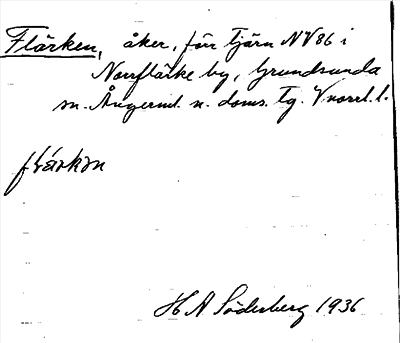 Flärken, åker, förr tjärn NV86 i
Norrflärke by, Grundsunda
sn. Ångerml. n. doms. tg. Vnorrl. l.
flärkən
H A Söderberg 1936